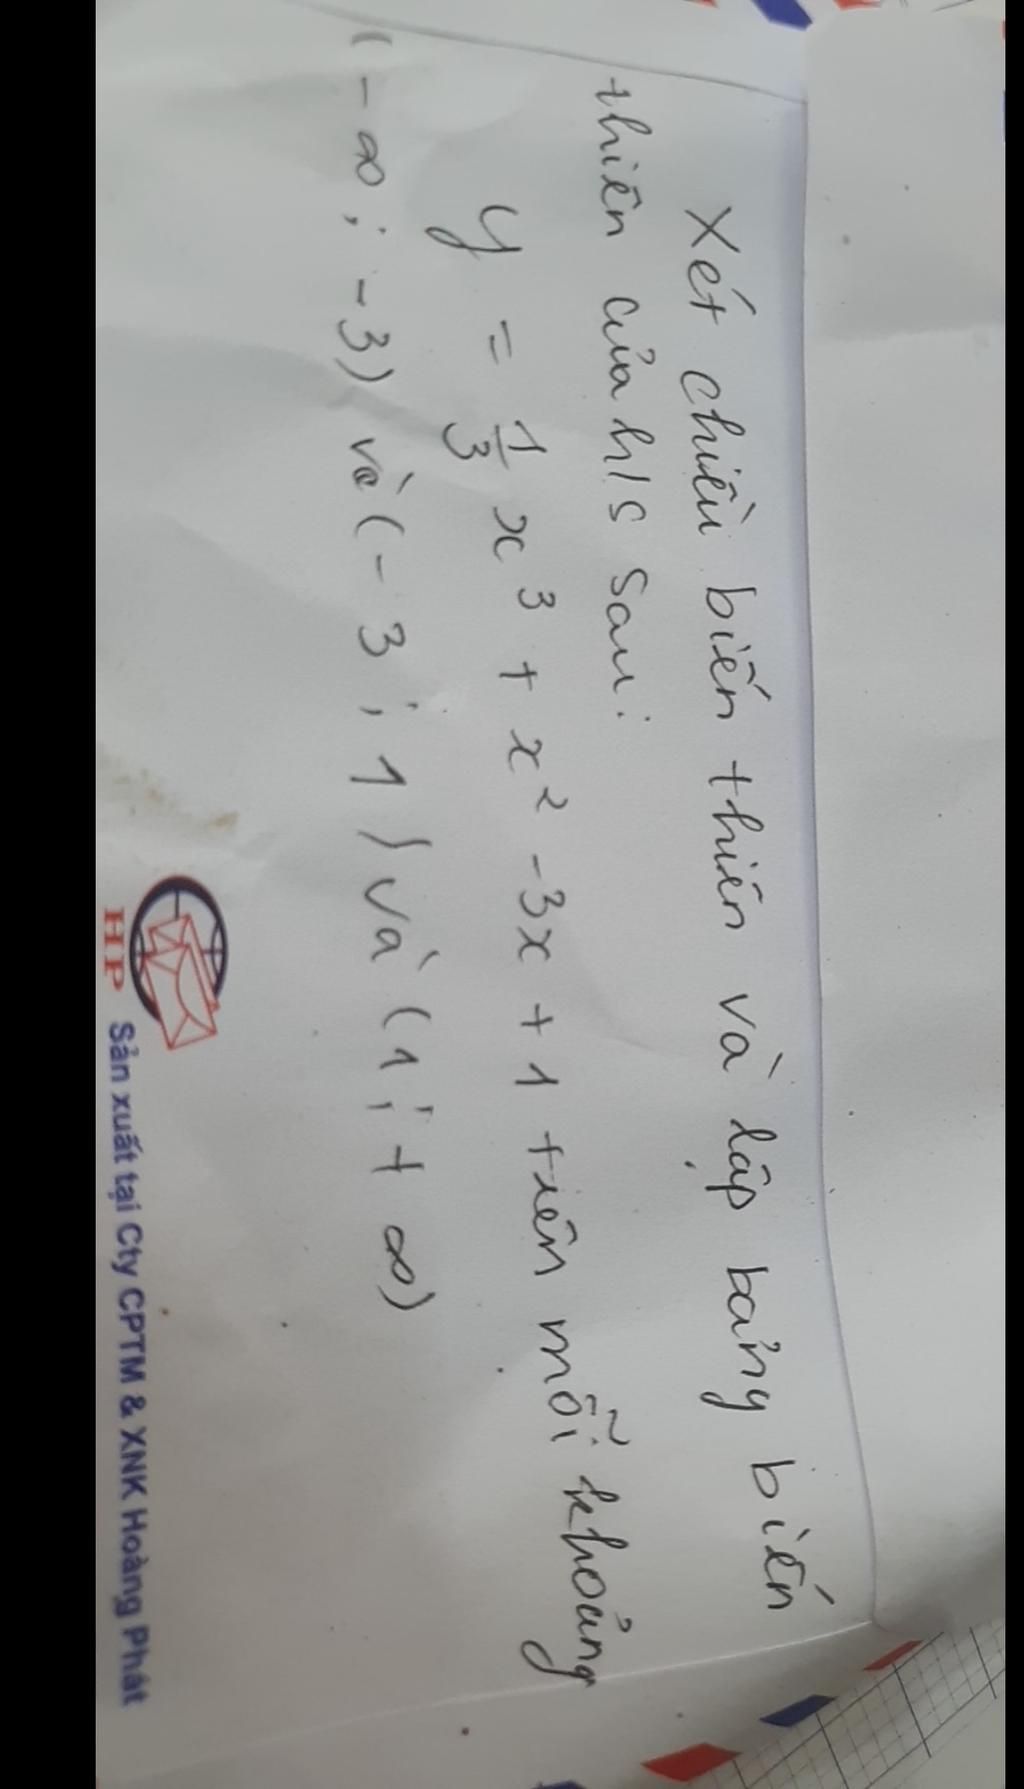 Xét chiều biến thiên và lập bảng biến
thiên của h/s sau:
y = 1/3 x³ + x² -3x + 1 trên mỗi khoảng
(-∞; -3) và (-3; 1) và (1; +∞)
HP Sản xuất tại Cty CPTM & XNK Hoàng Phát